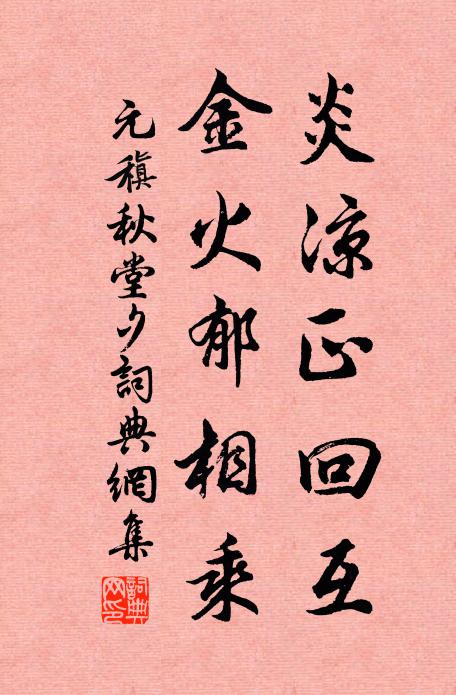 炎凉正回互
金火郁相乘
元稹秋堂夕詞典網集
詞典網印